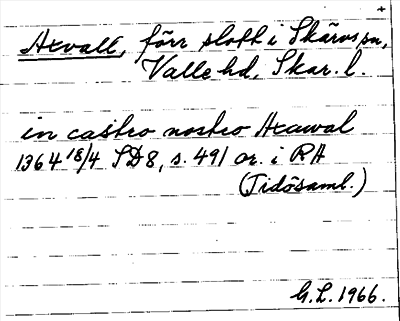 +
Axvall, förr slott i Skärvs sn,
Valle hd, Skar. l.
in castro nostro Axawal
1364 18/4 SD 8, s. 491 or. i RA
(Tidösaml.)
G.L. 1966.